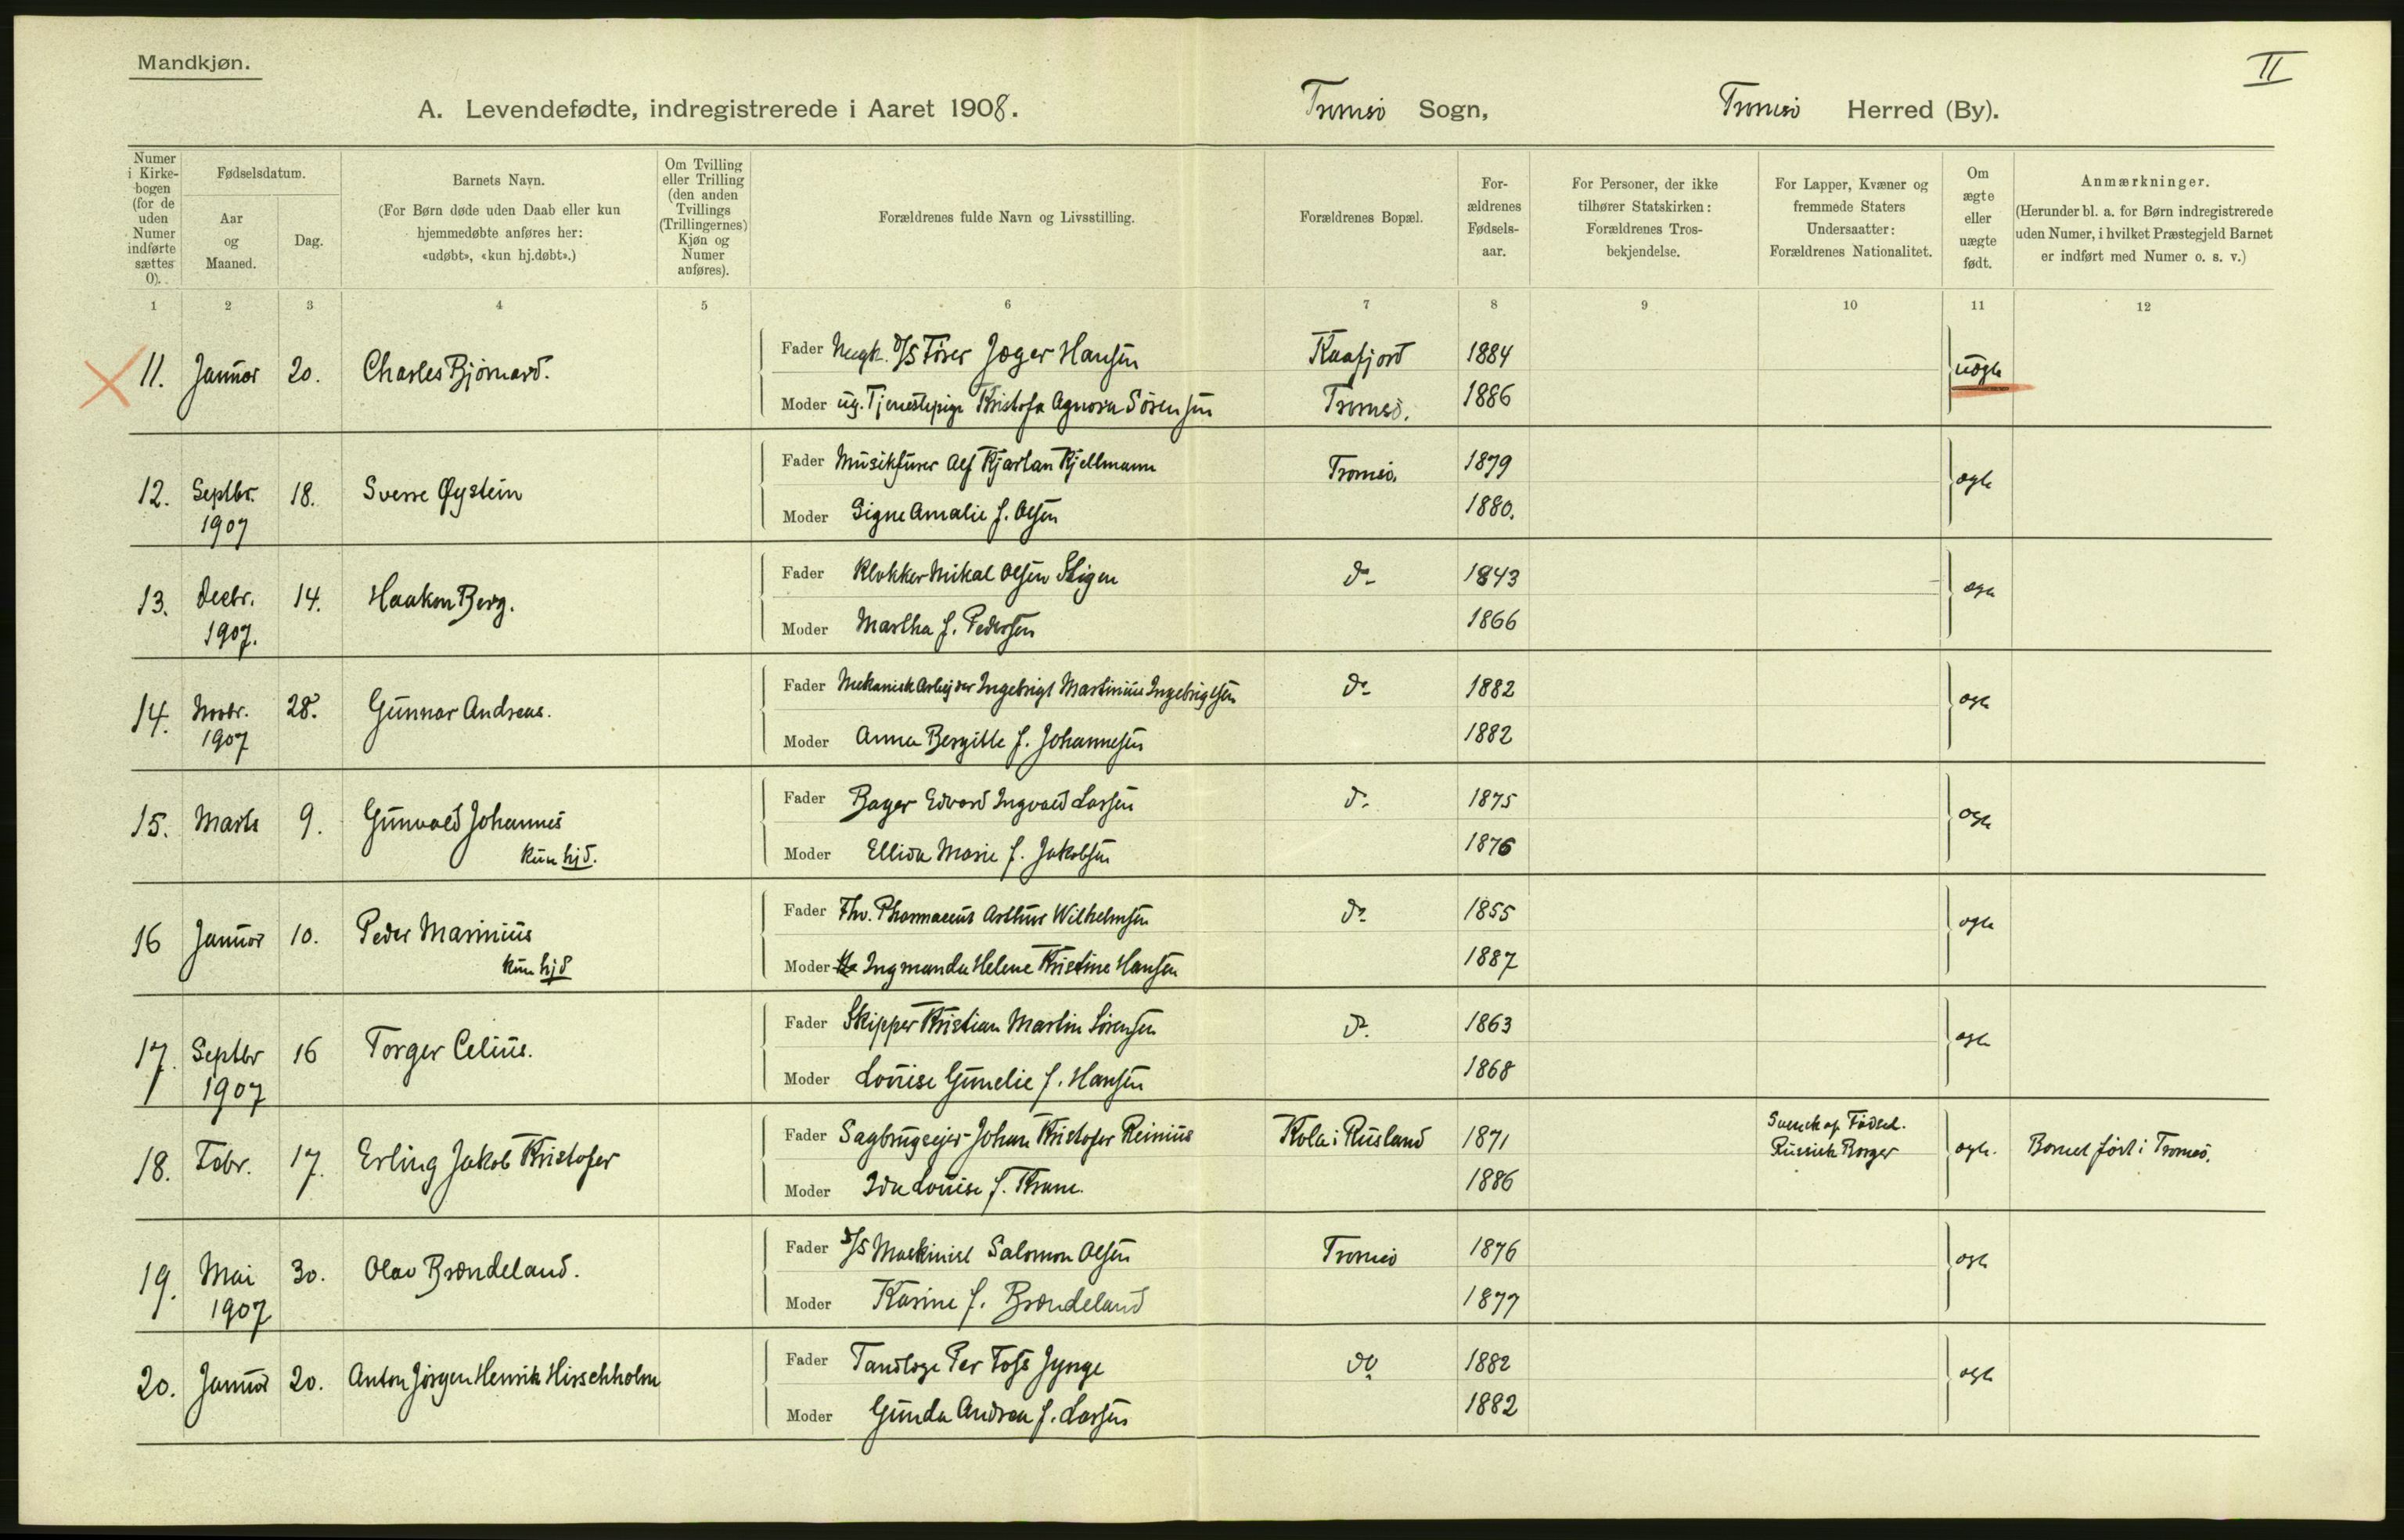 Mandkjøn.
II
A. Levendefødte, indregistrerede i Aaret 1908. Tromsø Sogn, Tromsø Herred (By).
Numer i Kirke-bogen (for de uden Numer indførte sættes 0).
Fødselsdatum.
Aar og Maaned.
Dag.
Barnets Navn.
(For Børn døde uden Daab eller kun hjemmedøbte anføres her: «udøbt», «kun hj.døbt».)
Om Tvilling eller Trilling (den anden Tvillings (Trillingernes) Kjøn og Numer anføres).
Forældrenes fulde Navn og Livsstilling.
Forældrenes Bopæl.
For-ældrenes Fødsels-aar.
For Personer, der ikke tilhører Statskirken: Forældrenes Tros-bekjendelse.
For Lapper, Kvæner og fremmede Staters Undersaatter: Forældrenes Nationalitet.
Om ægte eller uægte født.
Anmærkninger.
(Herunder bl. a. for Børn indregistrerede uden Numer, i hvilket Præstegjeld Barnet er indført med Numer o. s. v.)
1 2 3 4 5 6 7 8 9 10 11 12
11. Januar 20. Charles Bjørnard. Fader Ungk. D/S Fører Jæger Hansen Kaafjord 1884 uægte
Moder ug. Tjenestepige Kristofa Agnora Sørensen Tromsø. 1886
12. Septbr. 1907 18. Sverre Øystein Fader Musikfurer Alf Kjartan Kjellmann Tromsø. 1879 ægte
Moder Signe Amalie f. Olsen 1880.
13. Decbr. 1907. 14. Haakon Berg. Fader Klokker Mikal Olsen Stigen do 1843 ægte
Moder Martha f. Pedersen 1866
14. Novbr. 1907 28. Gunnar Andreas. Fader Mekanisk Arbejder Ingebrigt Martinius Ingebrigtsen do 1882 ægte
Moder Anna Bergitte f. Johannesen 1882
15. Marts 9. Gunvald Johannes Fader Bager Edvard Ingvald Larsen do 1875 ægte
kun hjd. Moder Ellida Marie f. Jakobsen 1876
16 Januar 10. Peder Marinius Fader Fhv. Pharmaceut Arthur Wilhelmsen do 1855 ægte
kun hjd Moder Ingmanda Helene Kristine Hansen 1887
17. Septbr 1907 16 Torger Celius. Fader Skipper Kristian Martin Sørensen do 1863 ægte
Moder Louise Gunelie f. Hansen 1868
18. Febr. 17. Erling Jakob Kristofer Fader Sagbrugsejer Johan Kristofer Reinius Kola i Rusland 1871 Svensk af Fødsel. Russisk Borger ægte. Barnet født i Tromsø.
Moder Ida Louise f. Krane. 1886
19. Mai 1907 30. Olav Brændeland. Fader D/S Maskinist Salomon Olsen Tromsø 1876 ægte
Moder Karine f. Brændeland 1877
20. Januar 20. Anton Jørgen Henrik Hirschholm Fader Tandlæge Per Foss Jynge do 1882 ægte
Moder Gunda Andrea f. Larsen 1882